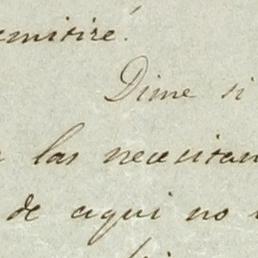 emitiré.
Dime si
las necesitan
de aqui no